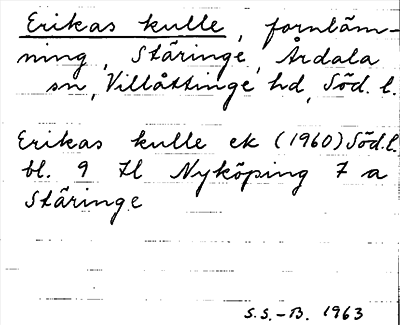 Erikas kulle, fornläm-
ning, Stäringe, Årdala
sn, Villåttinge hd, Söd. l.
Erikas kulle ek (1960) Söd. l.
bl. 9 Il Nyköping 7 a
Stäringe
S.S.-B. 1963